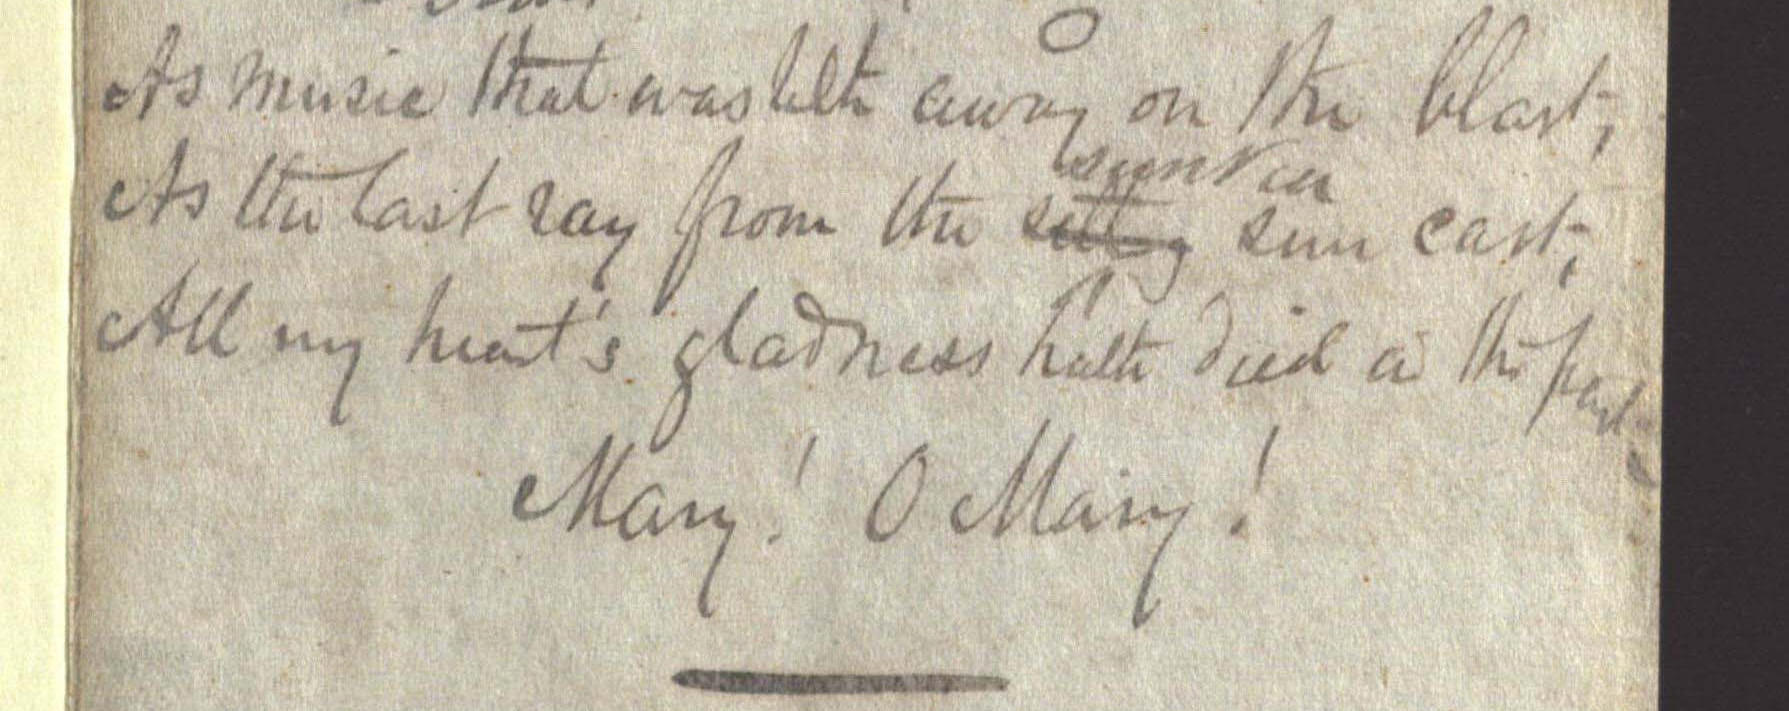 As music that wasteth away on the blast;
As the last ray from the setting sun cast;
All my heart's gladness hath died in the past
Mary! O Mary!